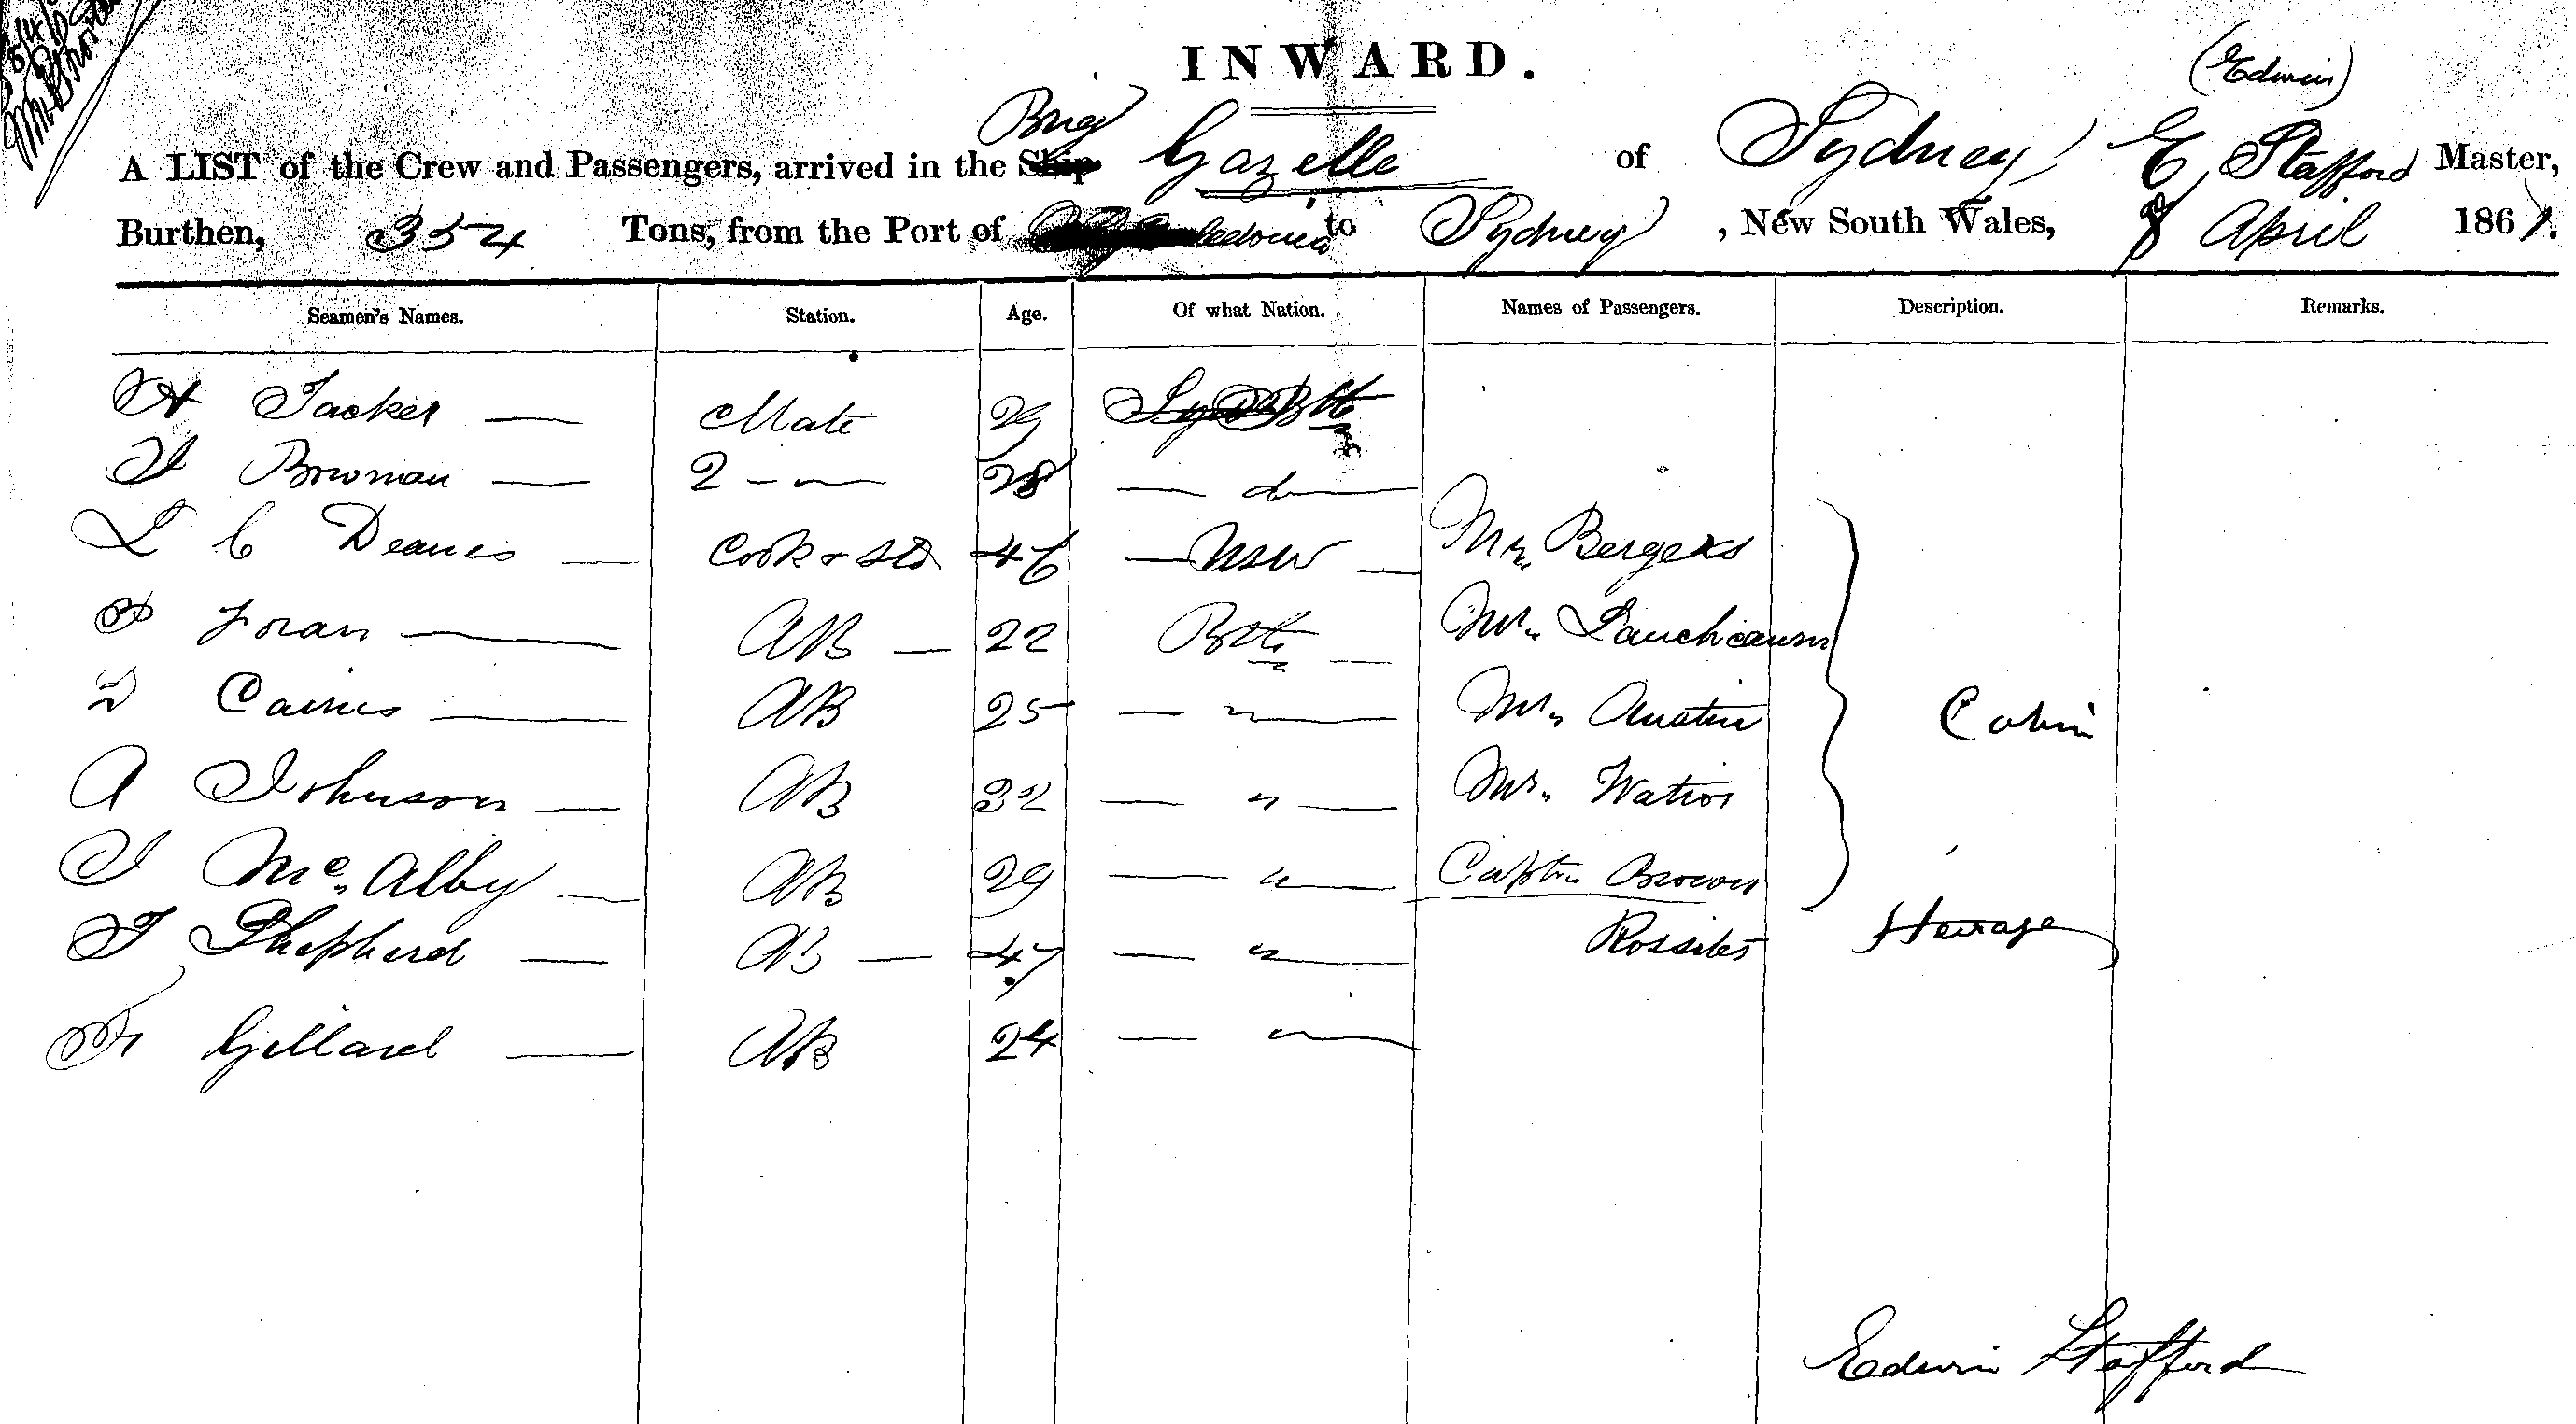 INWARD.
(Edwin)
A LIST of the Crew and Passengers, arrived in the Ship Brig Gazelle of Sydney E Stafford Master,
Burthen, 354 Tons, from the Port of Caledonia to Sydney, New South Wales, 8 April 1867.
Seamen's Names. Station. Age. Of what Nation. Names of Passengers. Description. Remarks.
H Tacker — Mate 29 Btt
J Bowman — 2 - " — 28 — do —
L C Deanes — Cook & Std 46 — NSW — Mr. Bergers
P Foran — AB — 22 Btt — Mr.
D Cairns — AB 25 — " — Mr. Austin Cabin
A Johnson — AB 32 — " — Mr. Watson
J McAlby — AB 29 — " — Captn Brown
T Shepherd — AB — 47 — " — Rossiter Steerage
Gillard — AB 24 — " —
Edwin Stafford